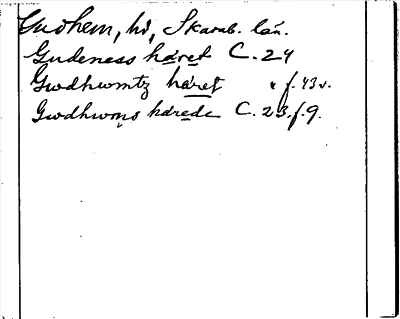 Gudhem, hd, Skarab. län.
Gudeness häret C. 24
Gwdhwmtz häret " f. 43 v.
Gwdhwms härede C. 23. f. 9.